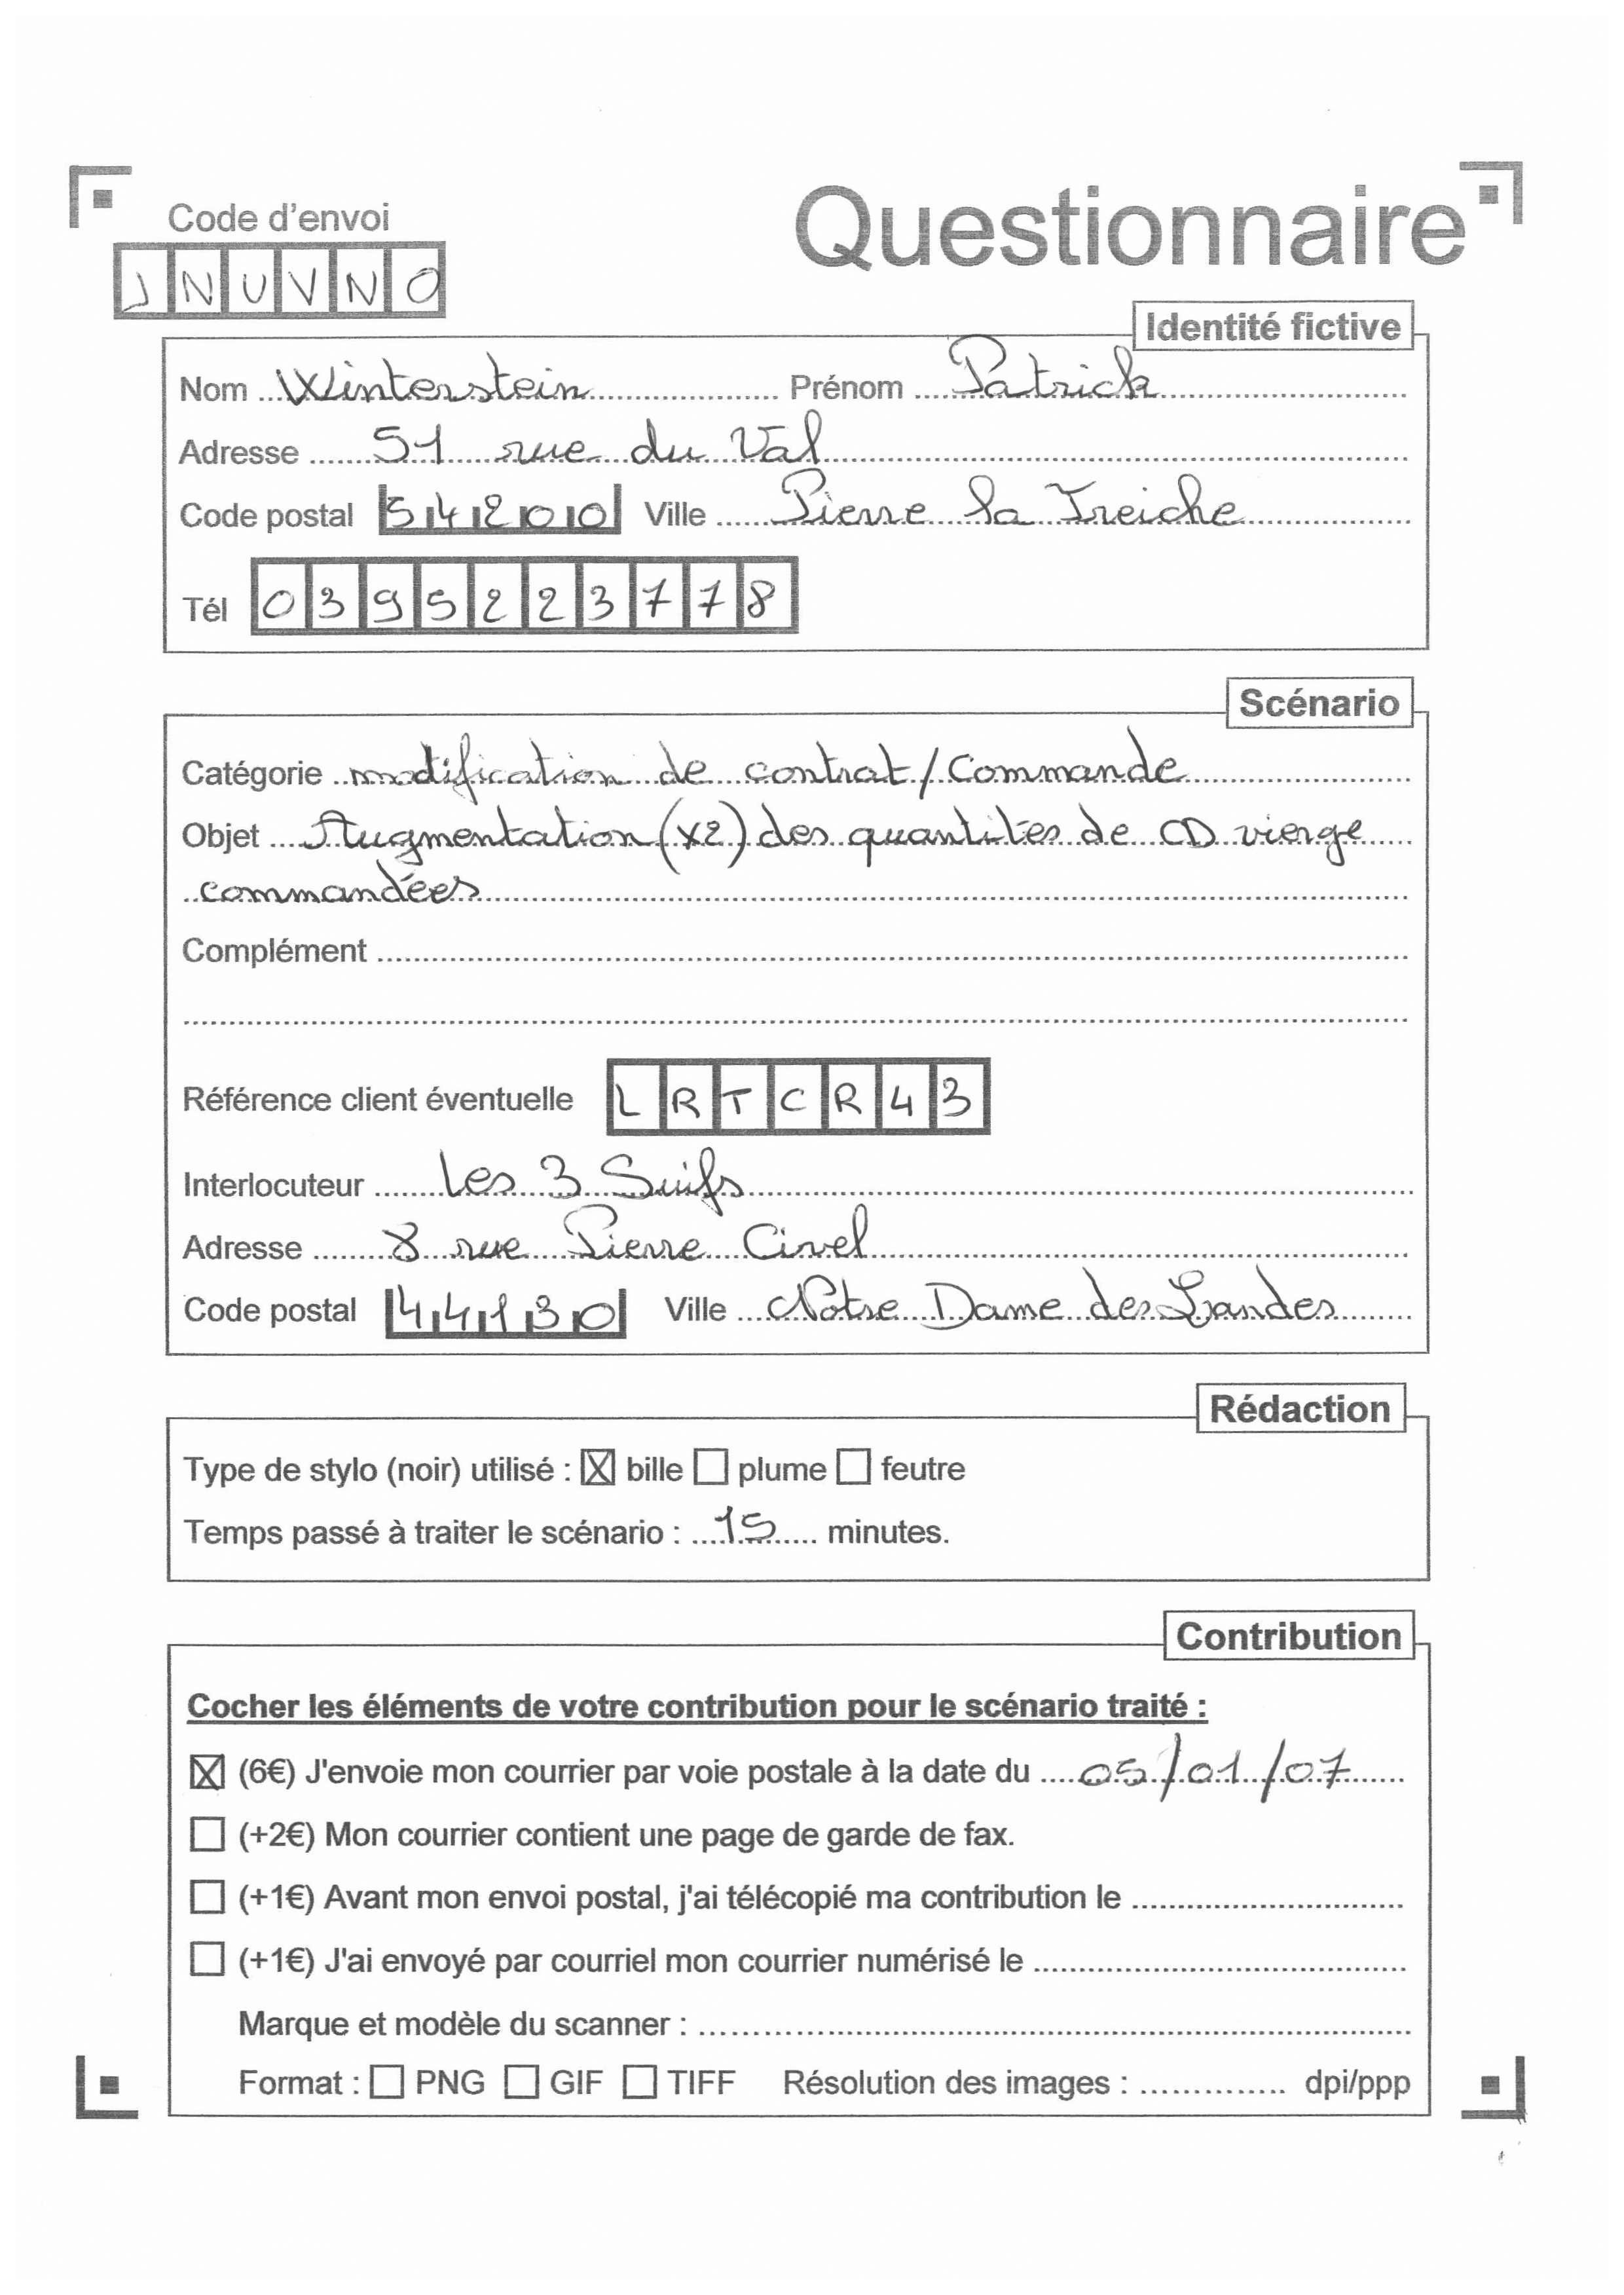 Code d'envoi
Questionnaire
JNUVNO
Identité fictive
Nom Winterstein Prénom Patrick
Adresse 51 rue du Val
Code postal 54200 Ville Pierre la Treiche
Tél 0395223778
Scénario
Catégorie modification de contrat/Commande
Objet Augmentation (x2) des quantités de CD vierge
commandées
Complément
Référence client éventuelle LRTCR43
Interlocuteur Les 3 Suifs
Adresse 8 rue Pierre Civel
Code postal 44130 Ville Notre Dame des Landes
Rédaction
Type de stylo (noir) utilisé : ☒ bille ☐ plume ☐ feutre
Temps passé à traiter le scénario : 15 minutes.
Contribution
Cocher les éléments de votre contribution pour le scénario traité :
☒ (6€) J'envoie mon courrier par voie postale à la date du 05/01/07
☐ (+2€) Mon courrier contient une page de garde de fax.
☐ (+1€) Avant mon envoi postal, j'ai télécopié ma contribution le
☐ (+1€) J'ai envoyé par courriel mon courrier numérisé le
Marque et modèle du scanner :
Format : ☐ PNG ☐ GIF ☐ TIFF Résolution des images : dpi/ppp